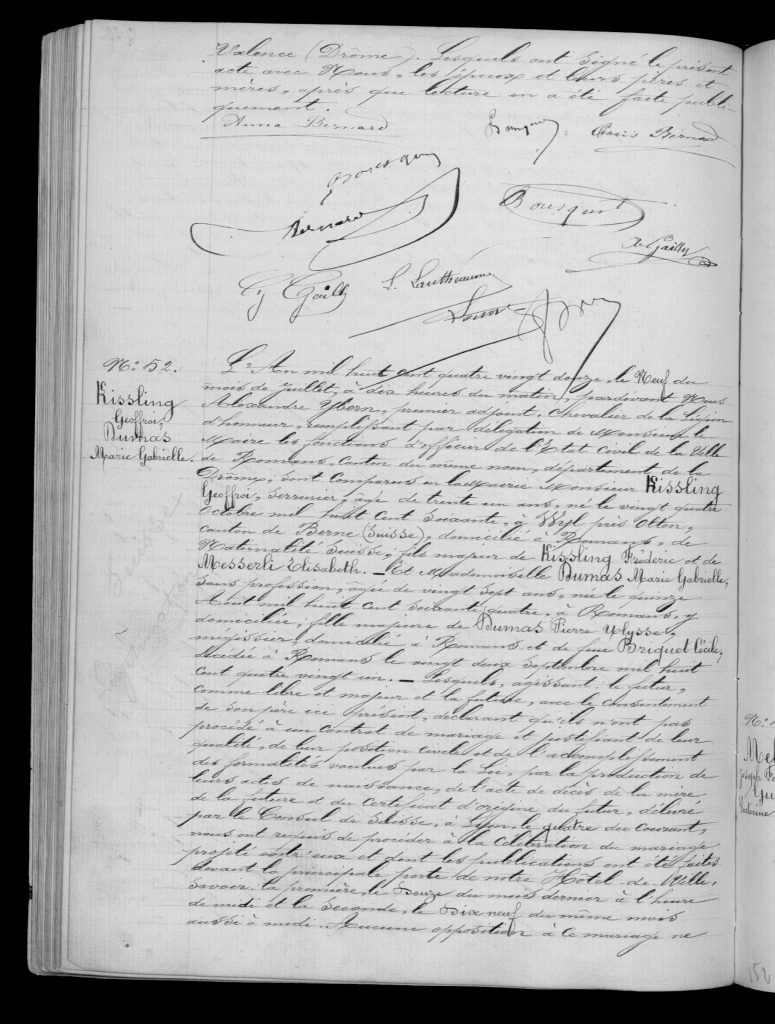 Valence (Drôme). Lesquels ont signé le présent
acte avec Nous, les époux et leurs pères et
mères, après que lecture en a été faite publi-
quement.
Anna Bernard
Bernard
Bousquet
Bernard
A. Gailly
Gailly
L. Lautheaume
N° 52.
Kissling
Geoffroi,
Dumas
Marie Gabrielle.
L'An mil huit cent quatre vingt douze, le Neuf du
mois de Juillet, à dix heures du matin, pardevant Nous
Alexandre Ybern, premier adjoint, Chevalier de la Légion
d'honneur, remplissant par délégation de Monsieur le
Maire les fonctions d'officier de l'Etat Civil de la Ville
de Romans, canton du même nom, département de la
Drôme, sont comparus en la Mairie Monsieur Kissling
Geoffroi, serrurier, âgé de trente un ans, né le vingt quatre
octobre mil huit cent soixante, à Wyl près Otton,
canton de Berne (Suisse), domicilié à Romans, de
Nationalité Suisse, fils majeur de Kissling Fréderic et de
Messerli Elisabeth. _ Et Mademoiselle Dumas Marie Gabrielle,
sans profession, âgée de vingt sept ans, née le quinze
Aout mil huit cent soixante quatre, à Romans, y
domiciliée, fille majeure de Dumas Pierre Ulysse,
mégissier, domicilié à Romans et de feue Briquet Cécile,
décédée à Romans le vingt deux Septembre mil huit
cent quatre vingt un. _ Lesquels, agissant: le futur,
comme libre et majeur et la future, avec le consentement
de son père ici présent, déclarant qu'ils n'ont pas
procédé à un contrat de mariage et justifiant de leur
qualité, de leur position civile et de l'accomplissement
des formalités voulues par la Loi, par la production de
leurs actes de naissance, de l'acte de décès de la mère
de la future et du Certificat d'origine du futur, délivré
par le Consul de Suisse, à Lyon, le quatre du Courant,
nous ont requis de procéder à la Célébration du mariage
projeté entr'eux et dont les publications ont été faites
devant la principale porte de notre Hôtel de Ville.
Savoir: la première, le Douze du mois dernier à l'heure
de midi et la Seconde, le Dix neuf du même mois
aussi à midi. Aucune opposition à ce mariage ne